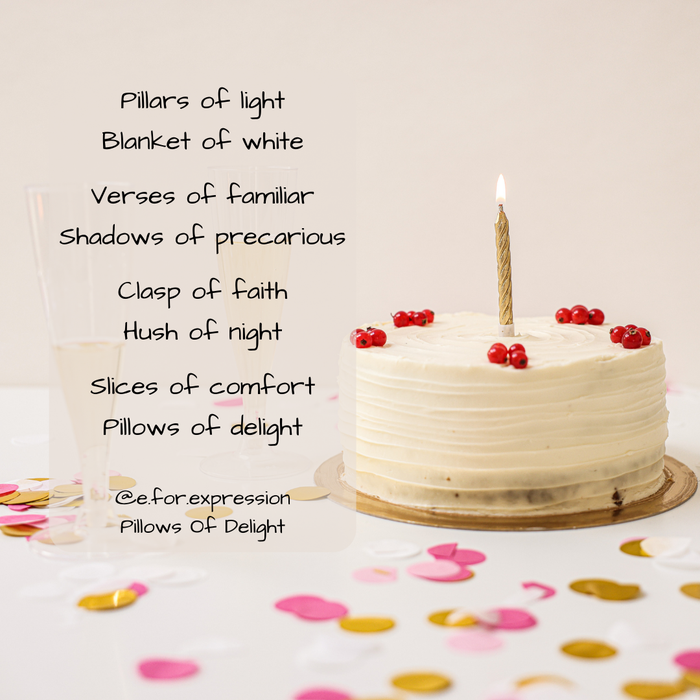 Pillars of light
Blanket of white
Verses of familiar
Shadows of precarious
Clasp of faith
Hush of night
Slices of comfort
Pillows of delight
@e.for.expression
Pillows Of Delight